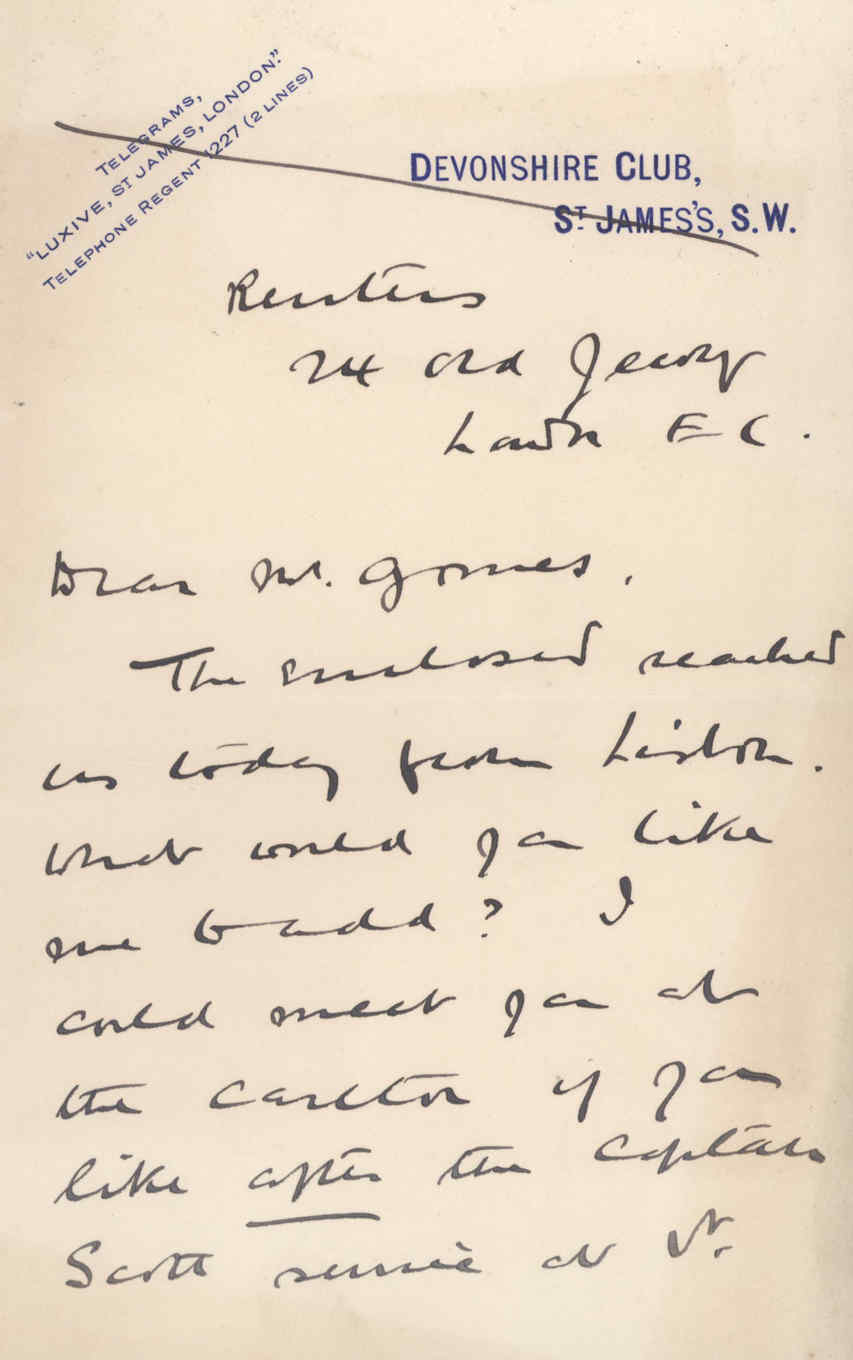 TELEGRAMS,
"LUXIVE, ST JAMES, LONDON."
TELEPHONE REGENT 1227 (2 LINES)
DEVONSHIRE CLUB,
ST JAMES'S, S.W.
Reuters
24 Old Jewry
London E C.
Dear Mr. Gomes,
The enclosed reached
us today from Lisbon.
What would you like
me to add? I
could meet you at
the Carlton if you
like after the Captain
Scott service at St.